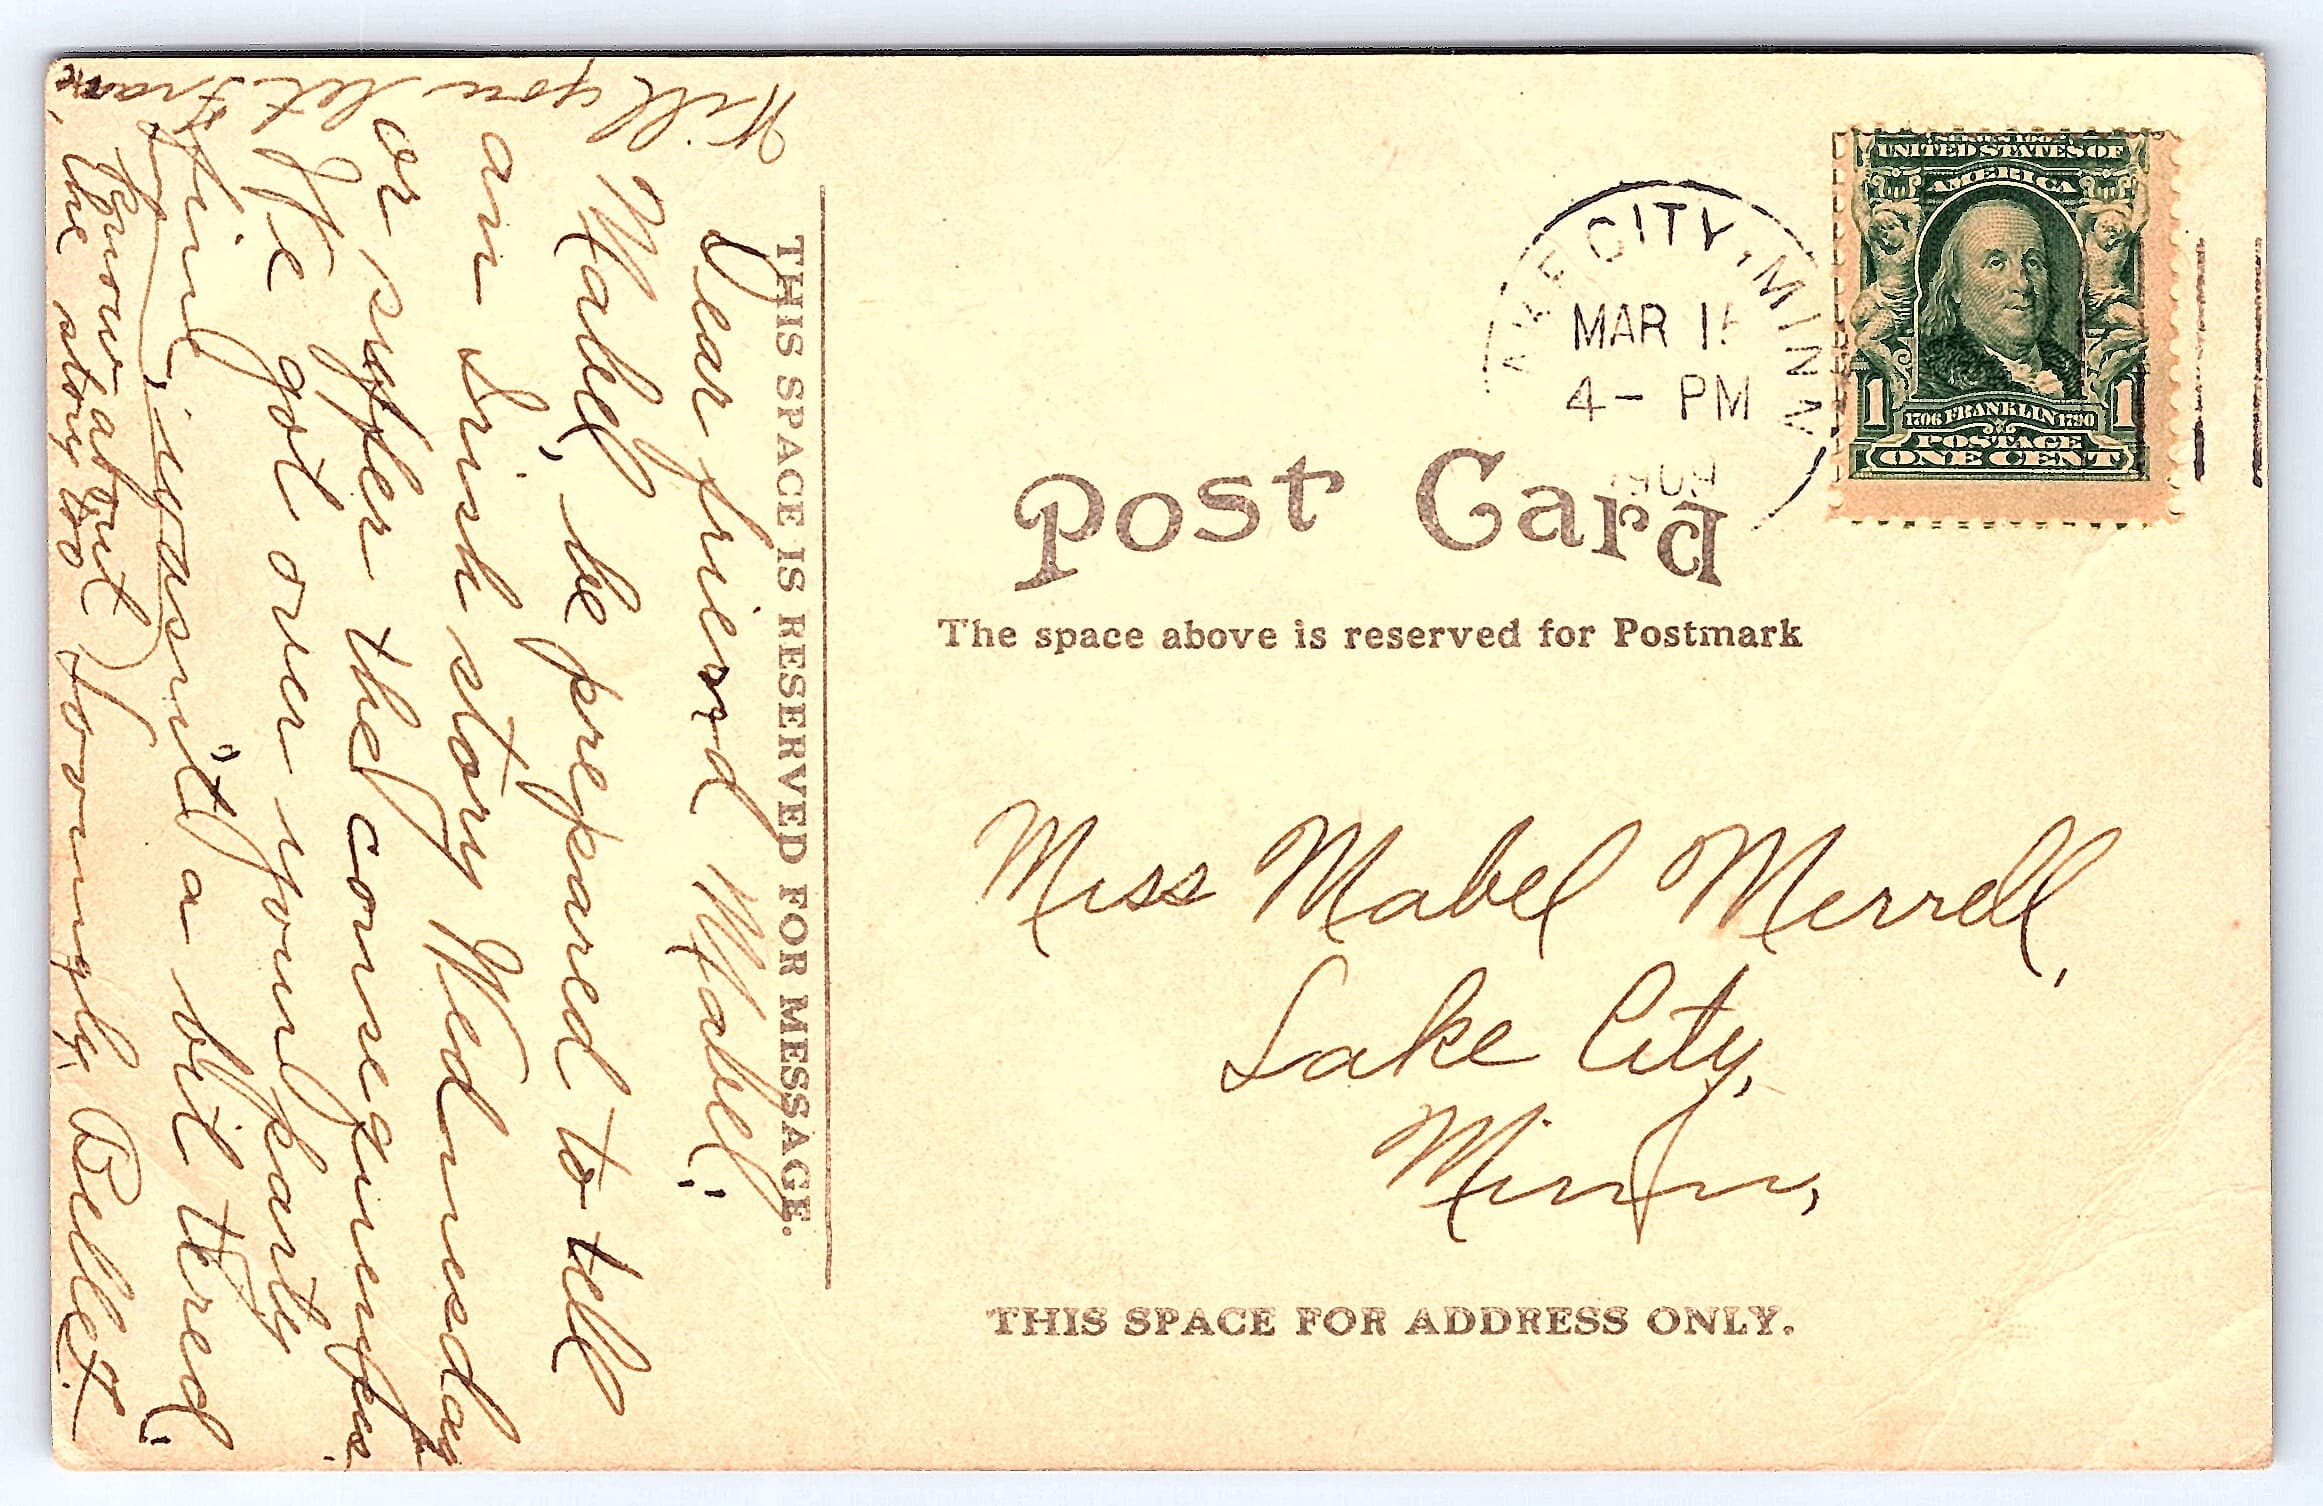 SERIES 1902
UNITED STATES OF
AMERICA
1706 FRANKLIN 1790
1 1
POSTAGE
ONE CENT
AKE CITY, MINN
MAR 15
4- PM
1909
Post Card
The space above is reserved for Postmark
Miss Mabel Merrell,
Lake City,
Minn,
THIS SPACE FOR ADDRESS ONLY.
THIS SPACE IS RESERVED FOR MESSAGE.
Dear friend Mabel:
Mabel, be prepared to tell
an Irish story Wednesday
or suffer the consequences.
I've got over your party
fine, wasn't a bit tired.
Lovingly, Bullet.
Will you let
know about
the story to